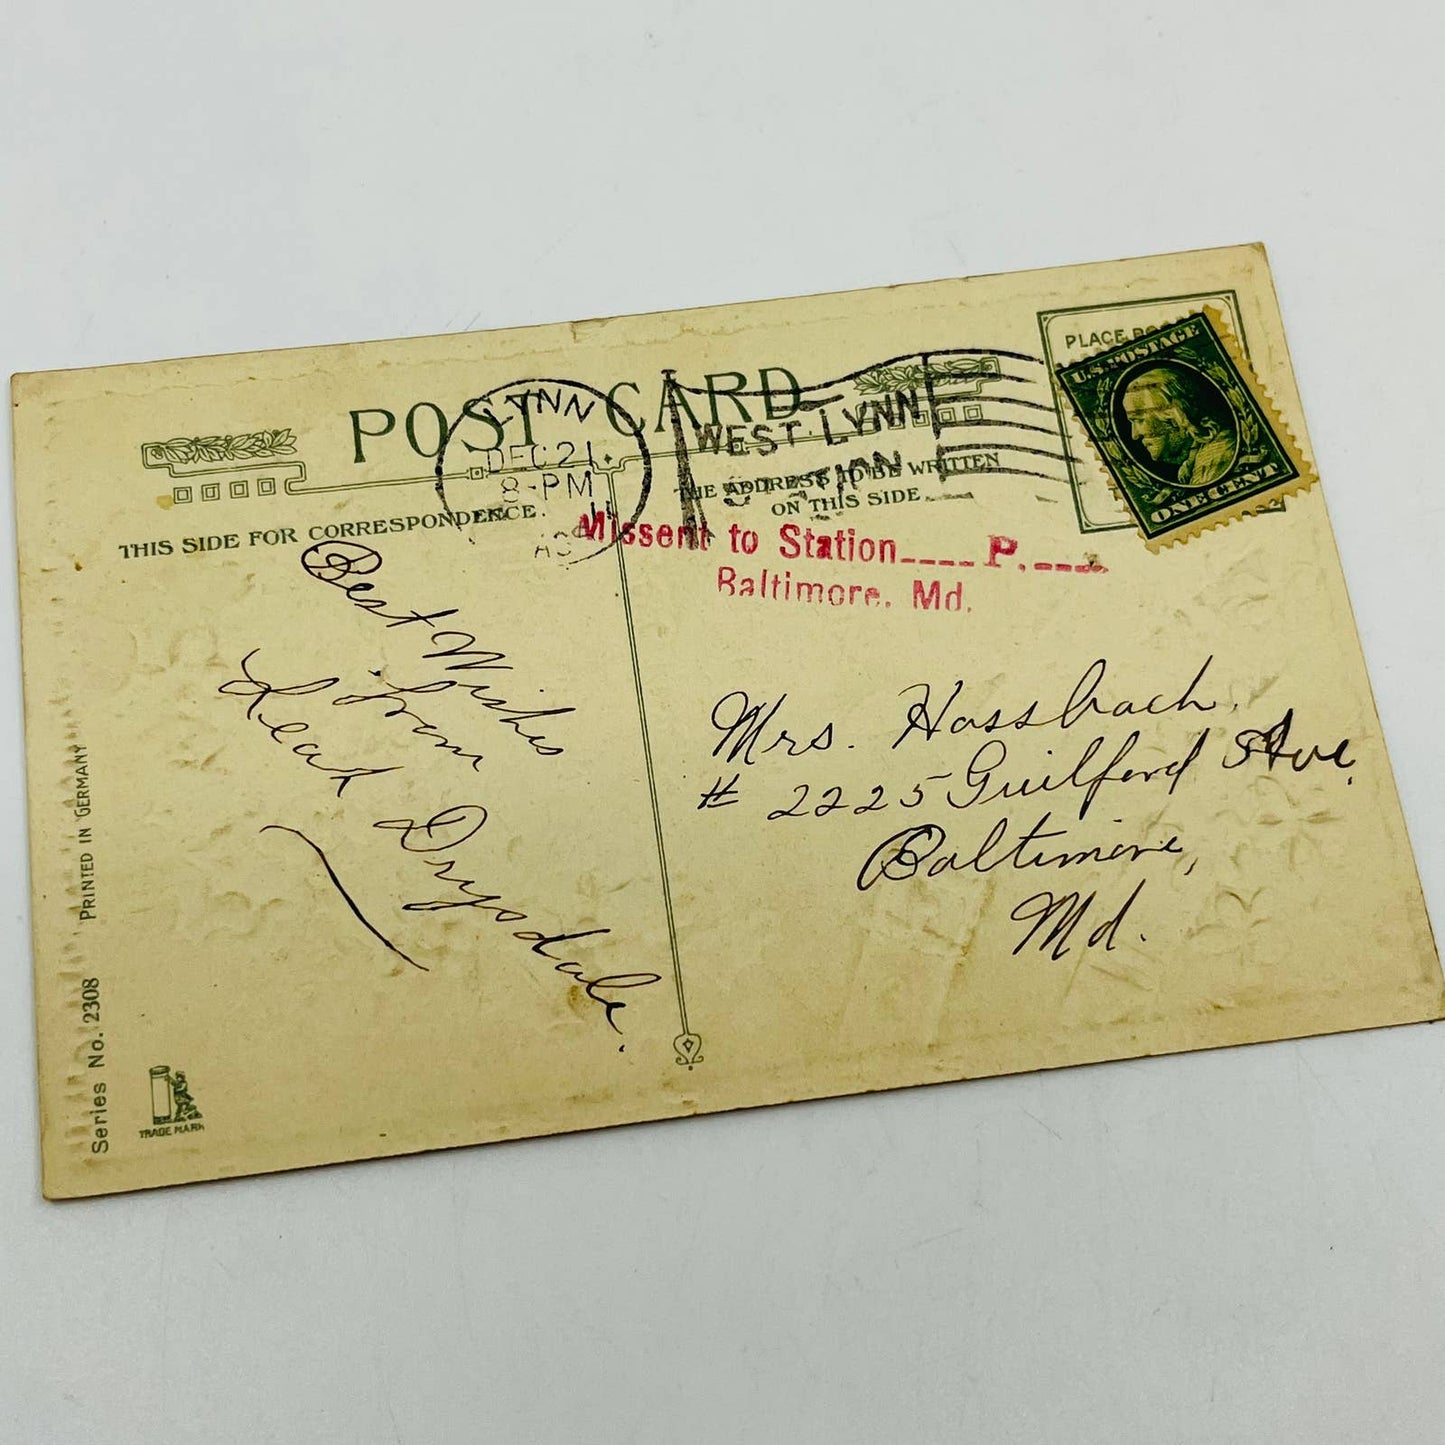 POST CARD
LYNN
DEC 21
8-PM
11
WEST LYNN
THIS SIDE FOR CORRESPONDENCE.
THE ADDRESS TO BE WRITTEN
ON THIS SIDE
PLACE
U.S. POSTAGE
ONE CENT
Missent to Station P.
Baltimore, Md.
Best Wishes
from
Leah Drysdale.
Mrs. Hassbach.
# 2225 Guilford Ave.
Baltimore,
Md.
Series No. 2308 PRINTED IN GERMANY
TRADE MARK